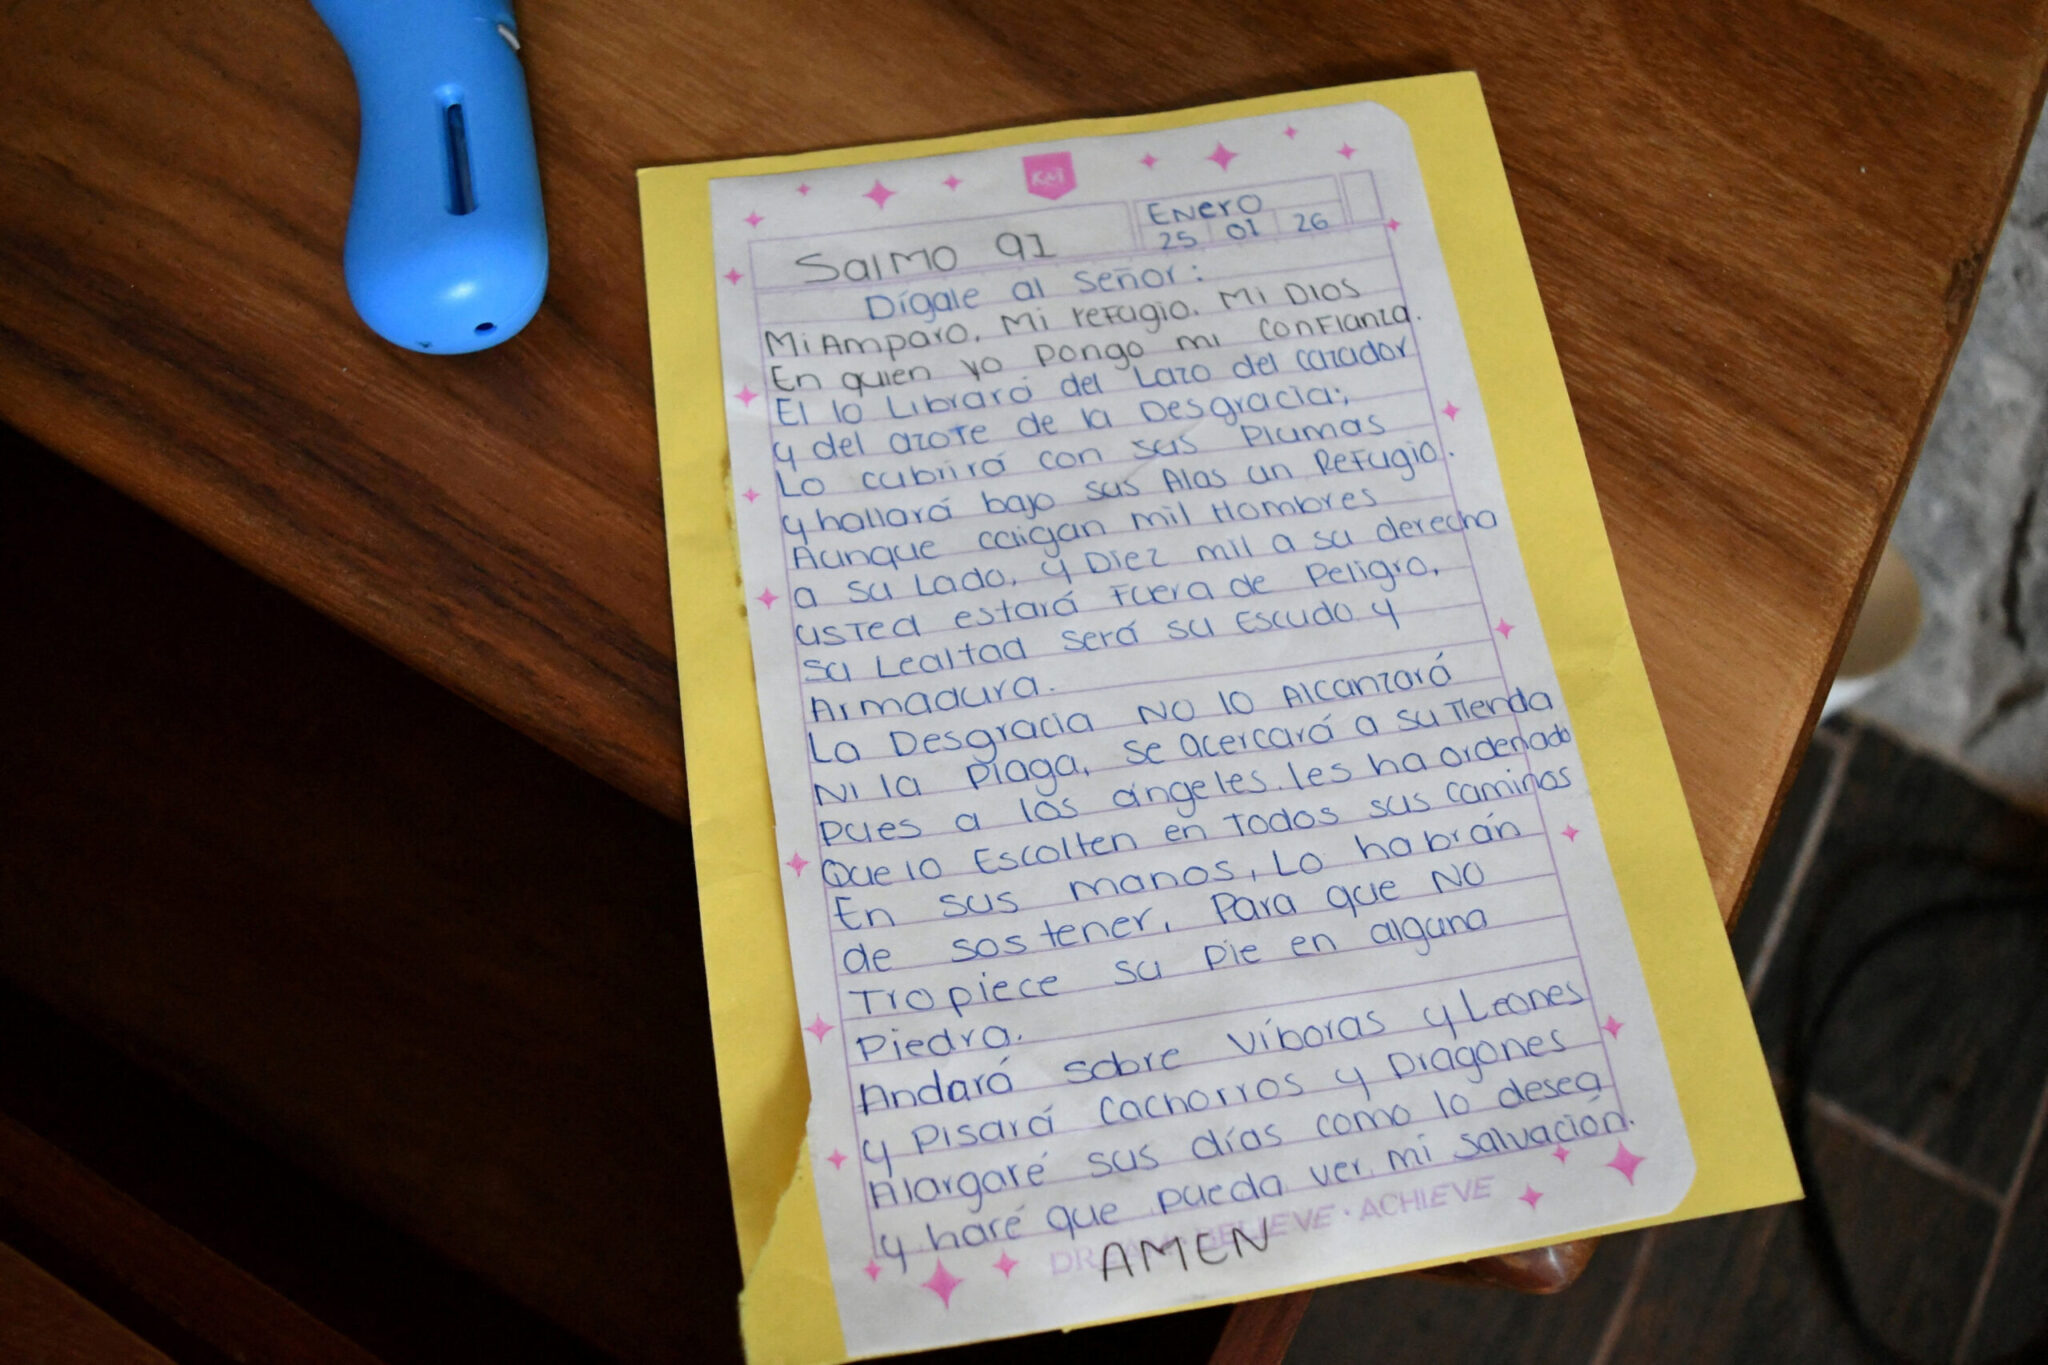 KM
Enero
25 01 26
Salmo 91
Dígale al Señor:
Mi Amparo, Mi refugio. Mi Dios
En quien yo pongo mi confianza.
El lo Librará del Lazo del cazador
y del azote de la Desgracia;
Lo cubrirá con sus Plumas
y hallará bajo sus Alas un Refugio.
Aunque caigan mil Hombres
a su Lado, y Diez mil a su derecha
usted estará Fuera de Peligro,
su Lealtad será su Escudo y
Armadura.
La Desgracia No lo Alcanzará
Ni la Plaga, se acercará a su Tienda
pues a los ángeles les ha ordenado
Que lo Escolten en todos sus caminos
En sus manos, Lo habrán
de sostener, Para que No
Tropiece su pie en alguna
Piedra.
Andará sobre Víboras y Leones
y Pisará Cachorros y Dragones
Alargaré sus días como lo desea
y haré que pueda ver mi salvación.
BELIEVE · ACHIEVE
AMEN